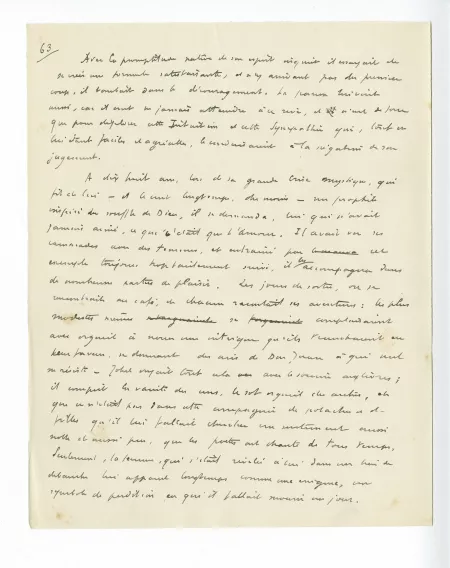 63
Avec la promptitude native de son esprit inquiet il essayait de
se créer une formule satisfaisante, et n'y arrivant pas du premier
coup, il tombait dans le découragement. La pensée
aussi, car il ne sut jamais attendre à ce
que pour cette Intuition et cette Sympathie qui, tout en
lui étant faciles et agréables, le à la de son
jugement.
A dix huit ans, lors de sa grande crise mystique, qui
fit de lui – et le tint longtemps, chez moi – un prophète
inspiré du souffle de Dieu, il se demanda, lui qui n'avait
jamais aimé, ce que c'était que l'amour. Il avait vu ses
camarades avec des femmes, et entraîné par cet
exemple toujours suivi, il les accompagna dans
de nombreuses parties de plaisir. Les jours de sortie, on se
rencontrait au café, où chacun racontait ses aventures : les plus
modestes mêmes se complaisaient
avec orgueil à nous une intrigue qu'ils
leur faveur, se donnant des airs de Don Juan à qui
– voyait tout cela avec le sourire ;
il comprit la vanité des uns, le sot orgueil des autres, et
que ce n'était pas dans cette compagnie de potaches et
filles qu'il lui fallait chercher un sentiment aussi
noble et aussi pur, que les poètes ont chanté de tous temps.
Seulement, la femme, qui s'était révélée à lui dans un lieu de
débauche lui apparut longtemps comme une énigme, un
symbole de perdition en qui il fallait mourir un jour.